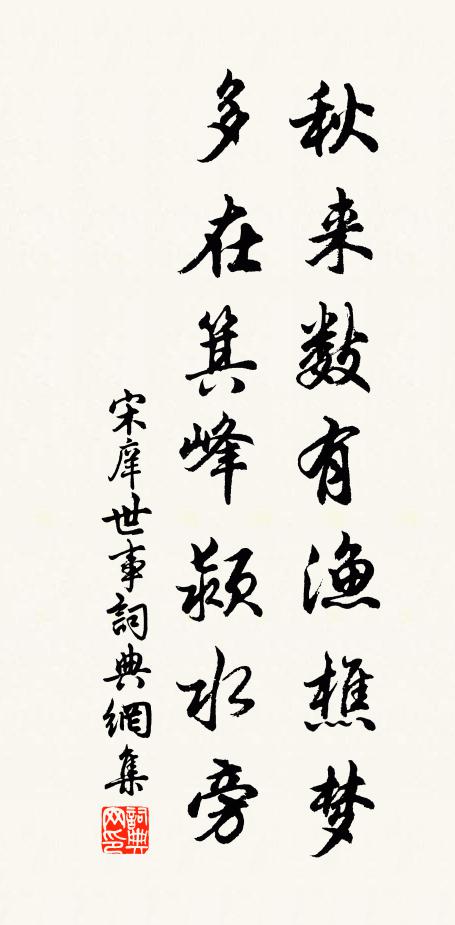 秋来数有渔樵梦
多在箕峰颍水旁
宋庠世事詞典網集
詞典网印